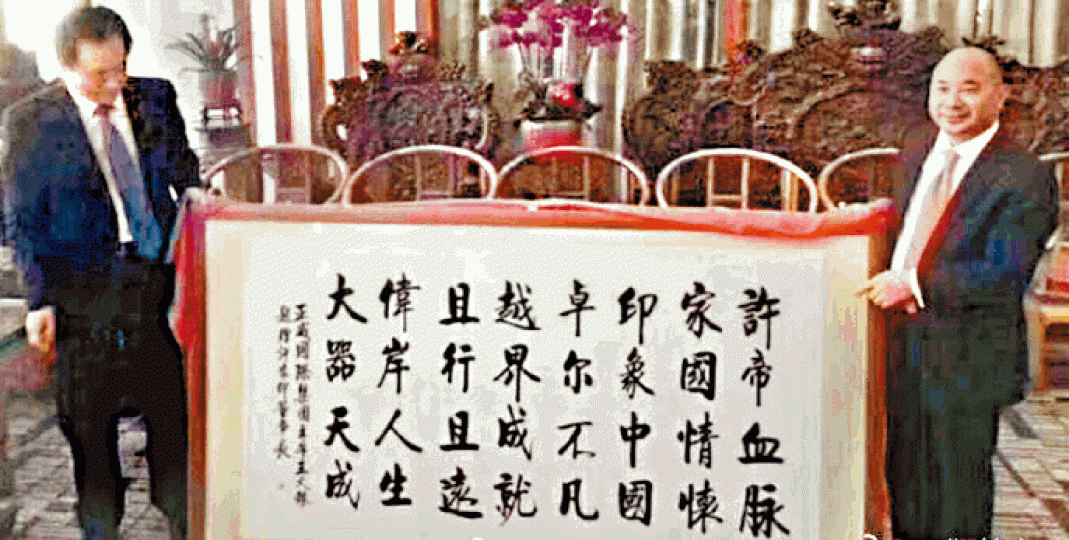 許帝血脉
家國情懷
印象中國
卓尔不凡
越界成就
且行且遠
偉岸人生
大器天成
正威國際集團主席王文銀